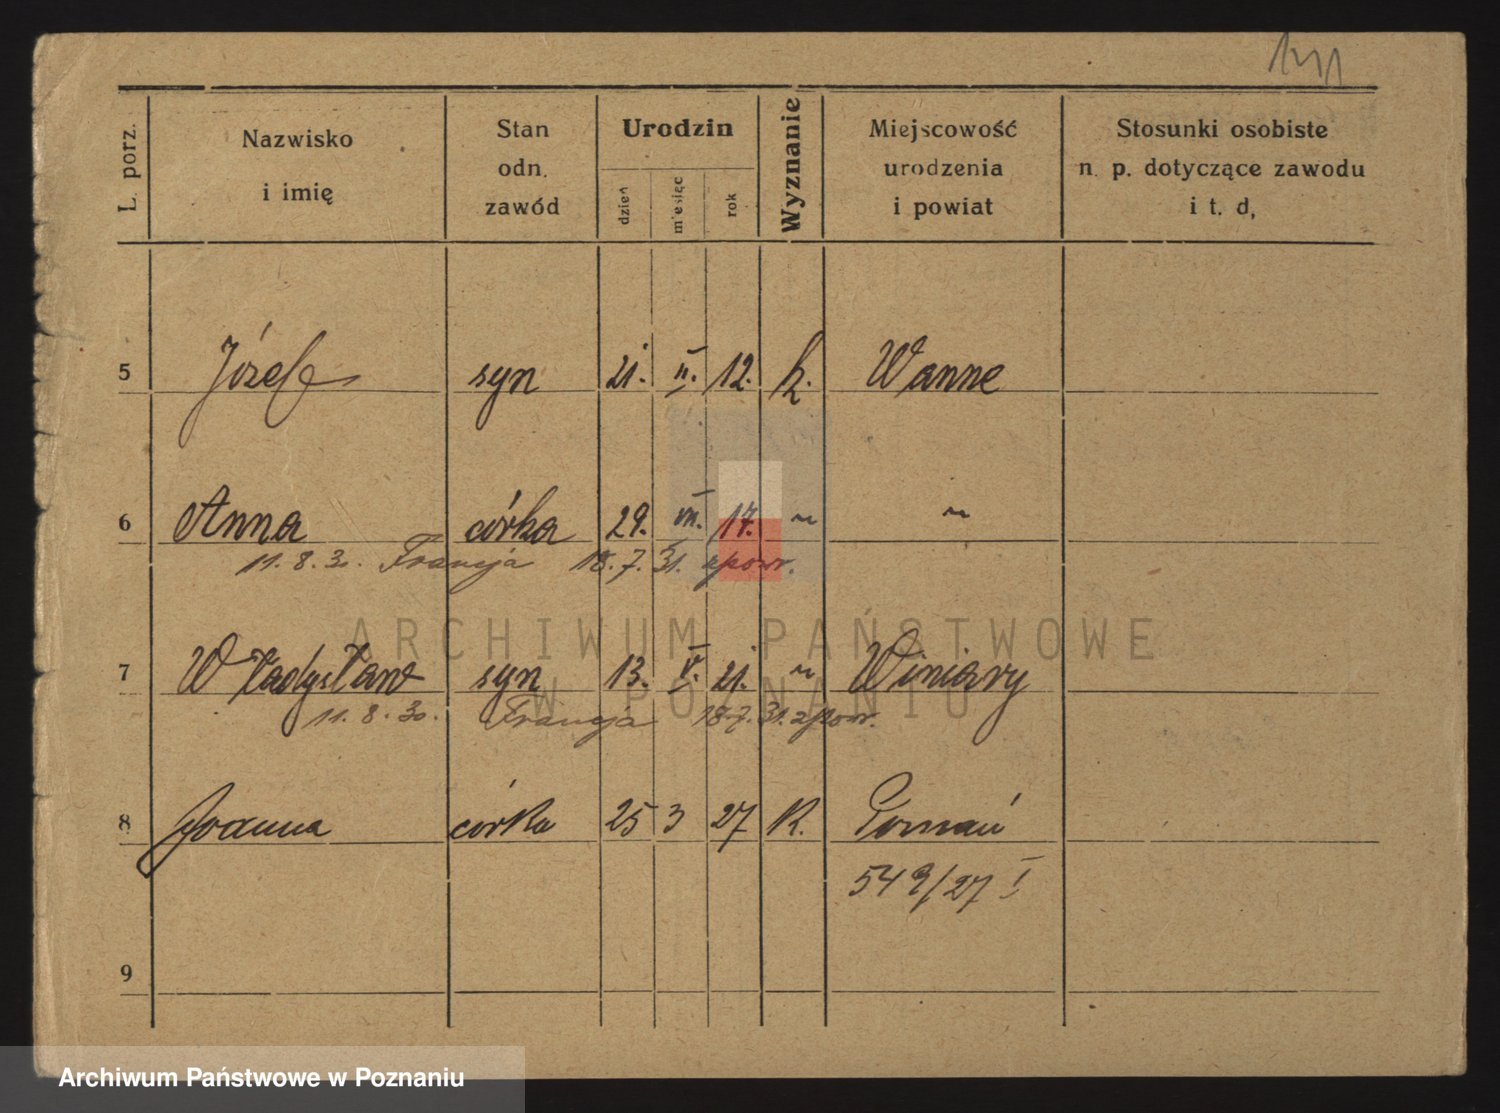 L. porz.
Nazwisko
i imię
Stan
odn.
zawód
Urodzin
dzień
miesiąc
rok
Wyznanie
Miejscowość
urodzenia
i powiat
Stosunki osobiste
n. p. dotyczące zawodu
i t. d,
5 Józef syn 21. II. 12. k. Wanne
6 Anna córka 29. VII. 17. " "
11. 8. 30. Francja 18. 7. 31. zpowr.
7 Władysław syn 13. V. 21. " Winiary
11. 8. 30. Francja 18. 7. 31. zpowr.
8 Joanna córka 25 3 27 k. Poznań
549/27 I
9
ARCHIWUM PAŃSTWOWE
W POZNANIU
Archiwum Państwowe w Poznaniu